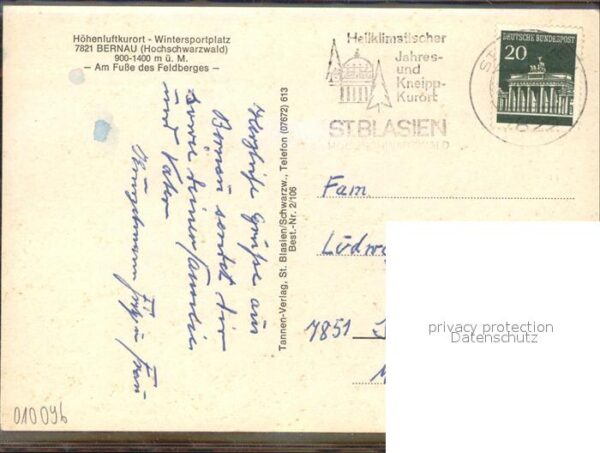 Höhenluftkurort - Wintersportplatz
7821 BERNAU (Hochschwarzwald)
900-1400 m ü. M.
– Am Fuße des Feldberges –
Heilklimatischer
Jahres-
und
Kneipp-
Kurort
ST.BLASIEN
HOCHSCHWARZWALD
DEUTSCHE BUNDESPOST
20
Herzliche Grüße aus
Bernau sendet Dir
sowie Deiner Familie
und Vater
Frau
Tannen-Verlag, St. Blasien/Schwarzw., Telefon (07672) 613
Best.-Nr. 2/106
Fam
Ludw
7851
privacy protection
Datenschutz
010096